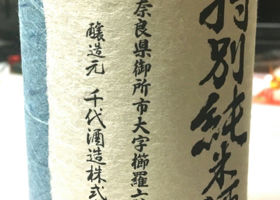 特別純米酒
奈良県御所市大字櫛羅六
醸造元 千代酒造株式